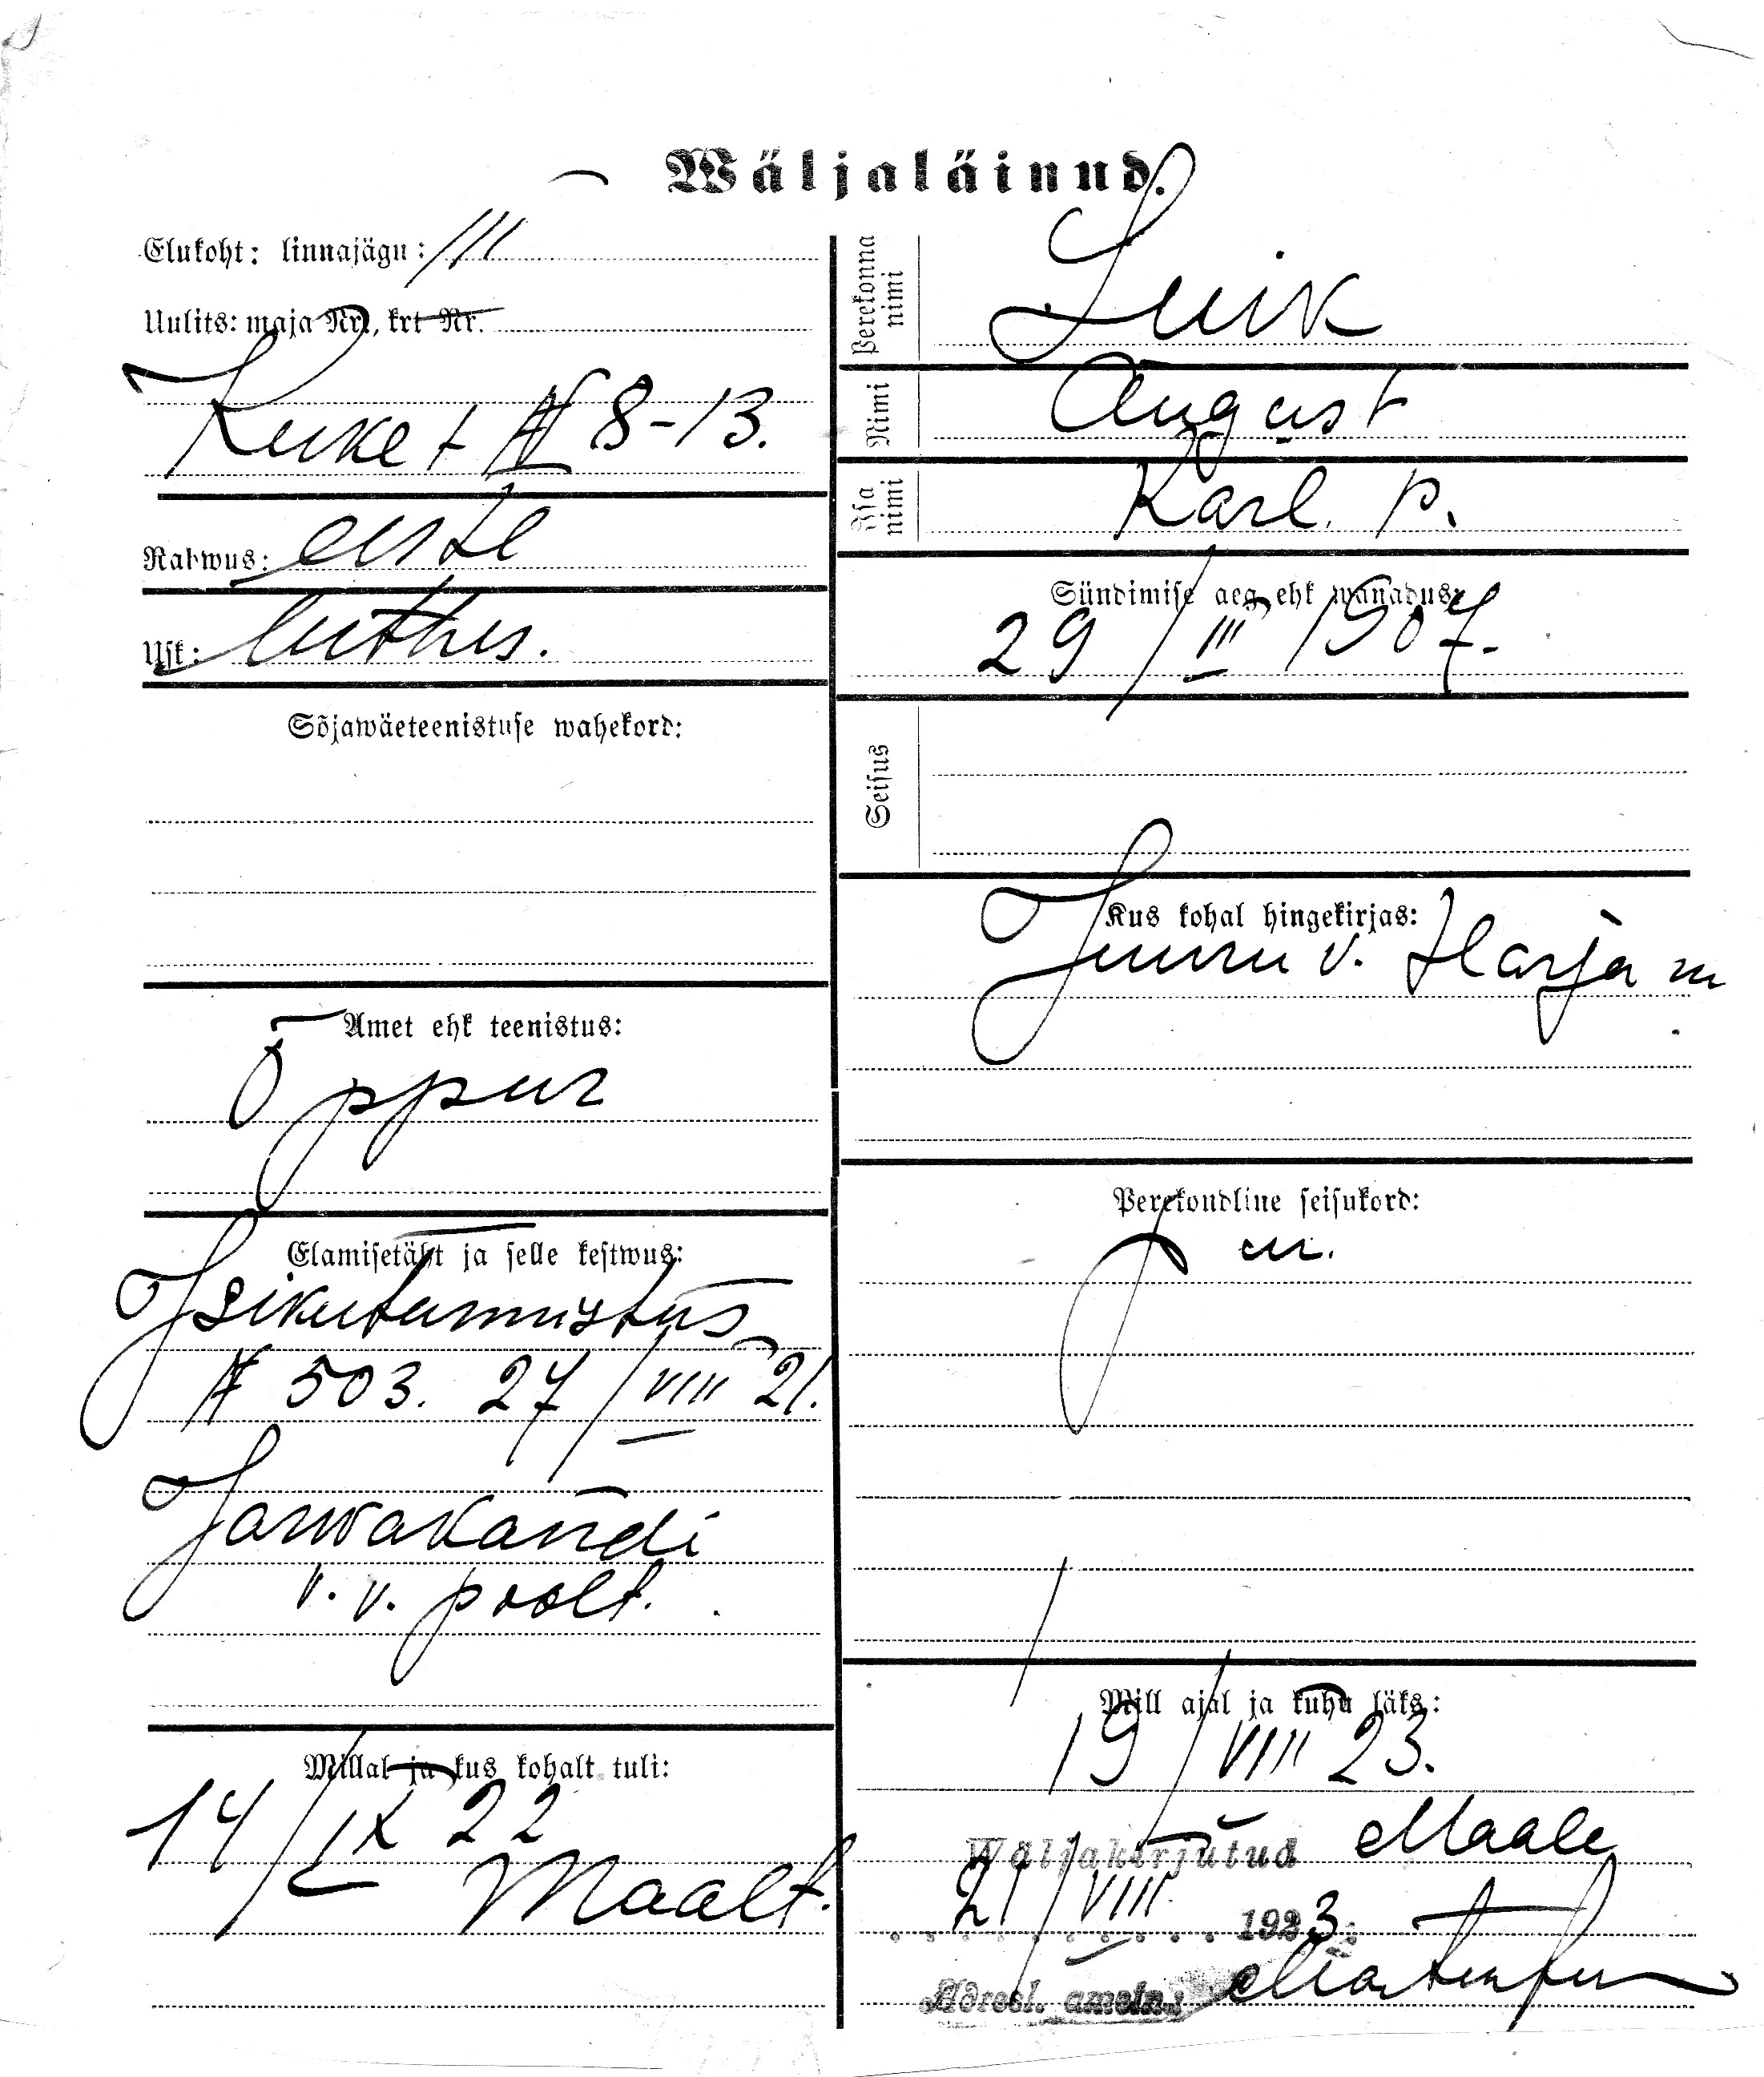 Wäljaläinud.
Elukoht: linnajägu: III
Uulits: maja Nr., krt Nr.
№ 8-13.
Rahwus: eesti
Usk: luthus.
Sõjawäeteenistuse wahekord:
Amet ehk teenistus:
Õppur
Elamisetäht ja selle kestwus:
Isikutunnistus
№ 503. 27/VIII 21.
Jarwakandi
v. v. poolt.
Millal ja kus kohalt tuli:
14/IX 22
Maalt.
Perekonna nimi Luik
Nimi August
Isa nimi Karl. p.
Sündimise aeg ehk wanadus:
29/III 1907.
Seisus
Kus kohal hingekirjas:
Juuru v. Harju m
Perekondline seisukord:
Mill ajal ja kuhu läks:
19/VIII 23.
Maale
Wäljakirjutud
21/VIII 1923.
Adresl. ametn.: